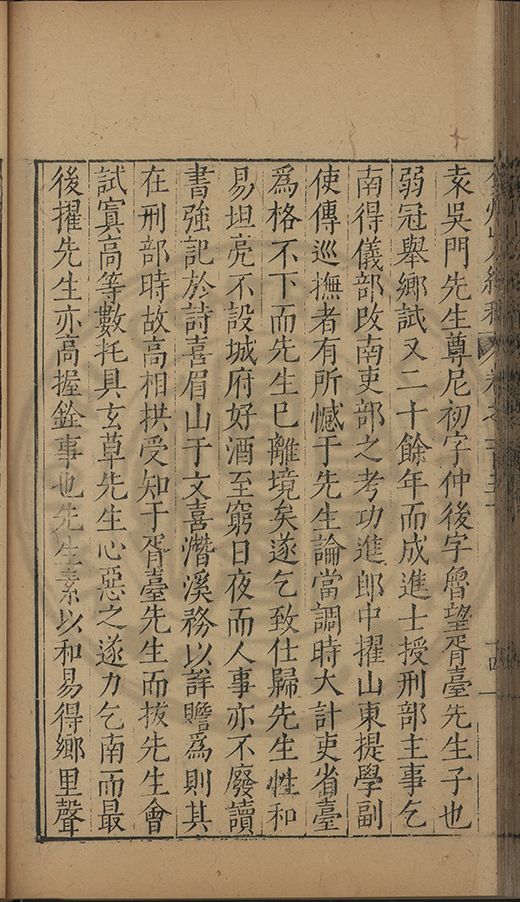 袁吳門先生尊尼初字仲後字魯望胥臺先生子也
弱冠舉鄉試又二十餘年而成進士授刑部主事乞
南得儀部改南吏部之考功進郎中擢山東提學副
使傳巡撫者有所憾于先生論當調時大計吏省臺
爲格不下而先生已離境矣遂乞致仕歸先生性和
易坦亮不設城府好酒至窮日夜而人事亦不廢讀
書強記於詩喜眉山于文喜潛溪務以詳贍爲則其
在刑部時故高相拱受知于胥臺先生而拔先生會
試寘高等數托具玄草先生心惡之遂力乞南而最
後擢先生亦高握銓事也先生素以和易得鄉里聲